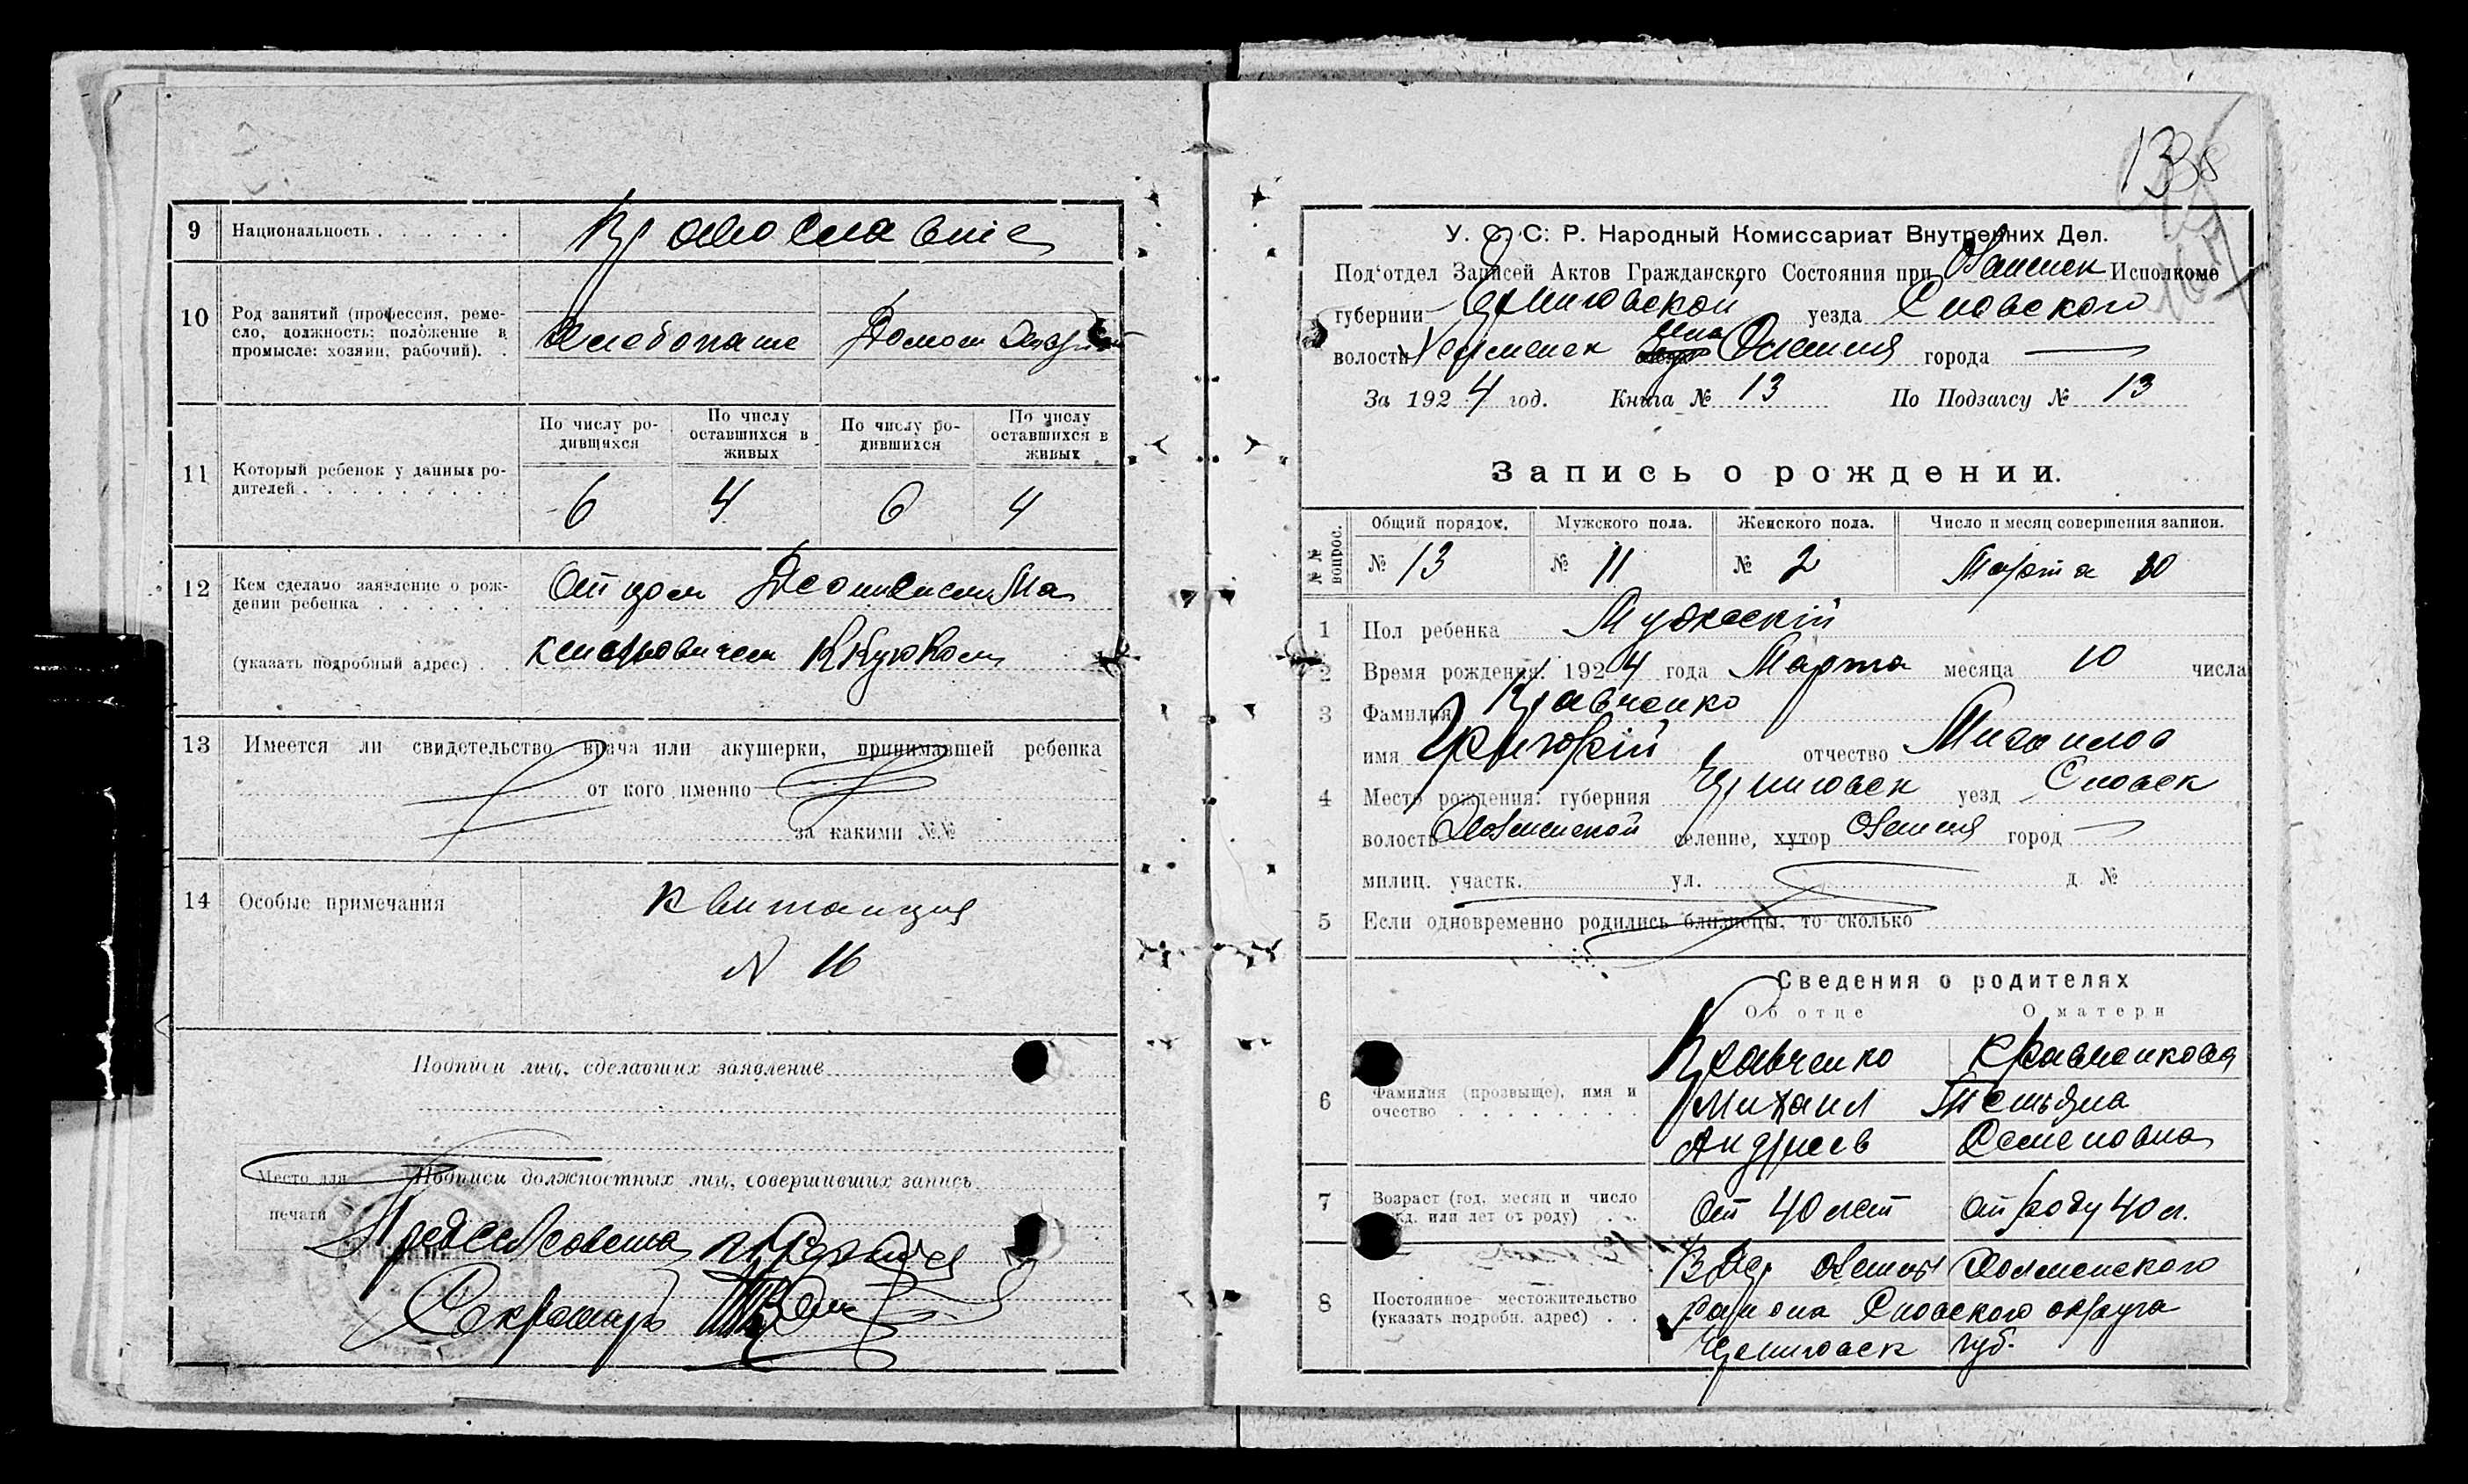 9 Национальность Православные
10 Род занятий (профессия, реме-
сло, должность: положение в
промысле: хозяин, рабочий).
Хлебопаше Домаш
11 Который ребенок у данных ро-
дителей
По числу ро-
дившихся
По числу
оставшихся в
живых
По числу ро-
дившихся
По числу
оставшихся в
живых
6 4 6 4
12 Кем сделано заявление о рож-
дении ребенка
Отцом
(указать подробный адрес)
13 Имеется ли свидетельство врача или акушерки, принимавшей ребенка
от кого именно
за какими №№
14 Особые примечания
Квитанция
N 16
Подписи лиц, сделавших заявление
Место для
печати
Подписи должностных лиц, совершивших запись
Секретарь
138
У. С. С. Р. Народный Комиссариат Внутренних Дел.
Под'отдел Записей Актов Гражданского Состояния при Исполкоме
губернии Черниговской уезда Сновского
волости города
За 1924 год. Книга № 13 По Подзагсу № 13
Запись о рождении.
№№ вопрос.
Общий порядок.
Мужского пола.
Женского пола.
Число и месяц совершения записи.
№ 13
№ 11
№ 2
Марта
1 Пол ребенка Мужескій
2 Время рождения: 1924 года Марта месяца 10 числа
3 Фамилия Кравченко
имя Григорій отчество Михаилов
4 Место рождения: губерния Черниговск уезд Сновск
волость селение, хутор город
милиц. участк. ул. д №
5 Если одновременно родились близнецы, то сколько
Сведения о родителях
Об отце О матери
6 Фамилия (прозвыще), имя и
очество
Кравченко Кравченкова
Михаил Тетьяна
Андреев Семеновна
7 Возраст (год, месяц и число
рожд. или лет от роду)
От 40 лет От роду 40 л.
8 Постоянное местожительство
(указать подробн. адрес)
Холменского
района Сновского округа
Черниговск губ.